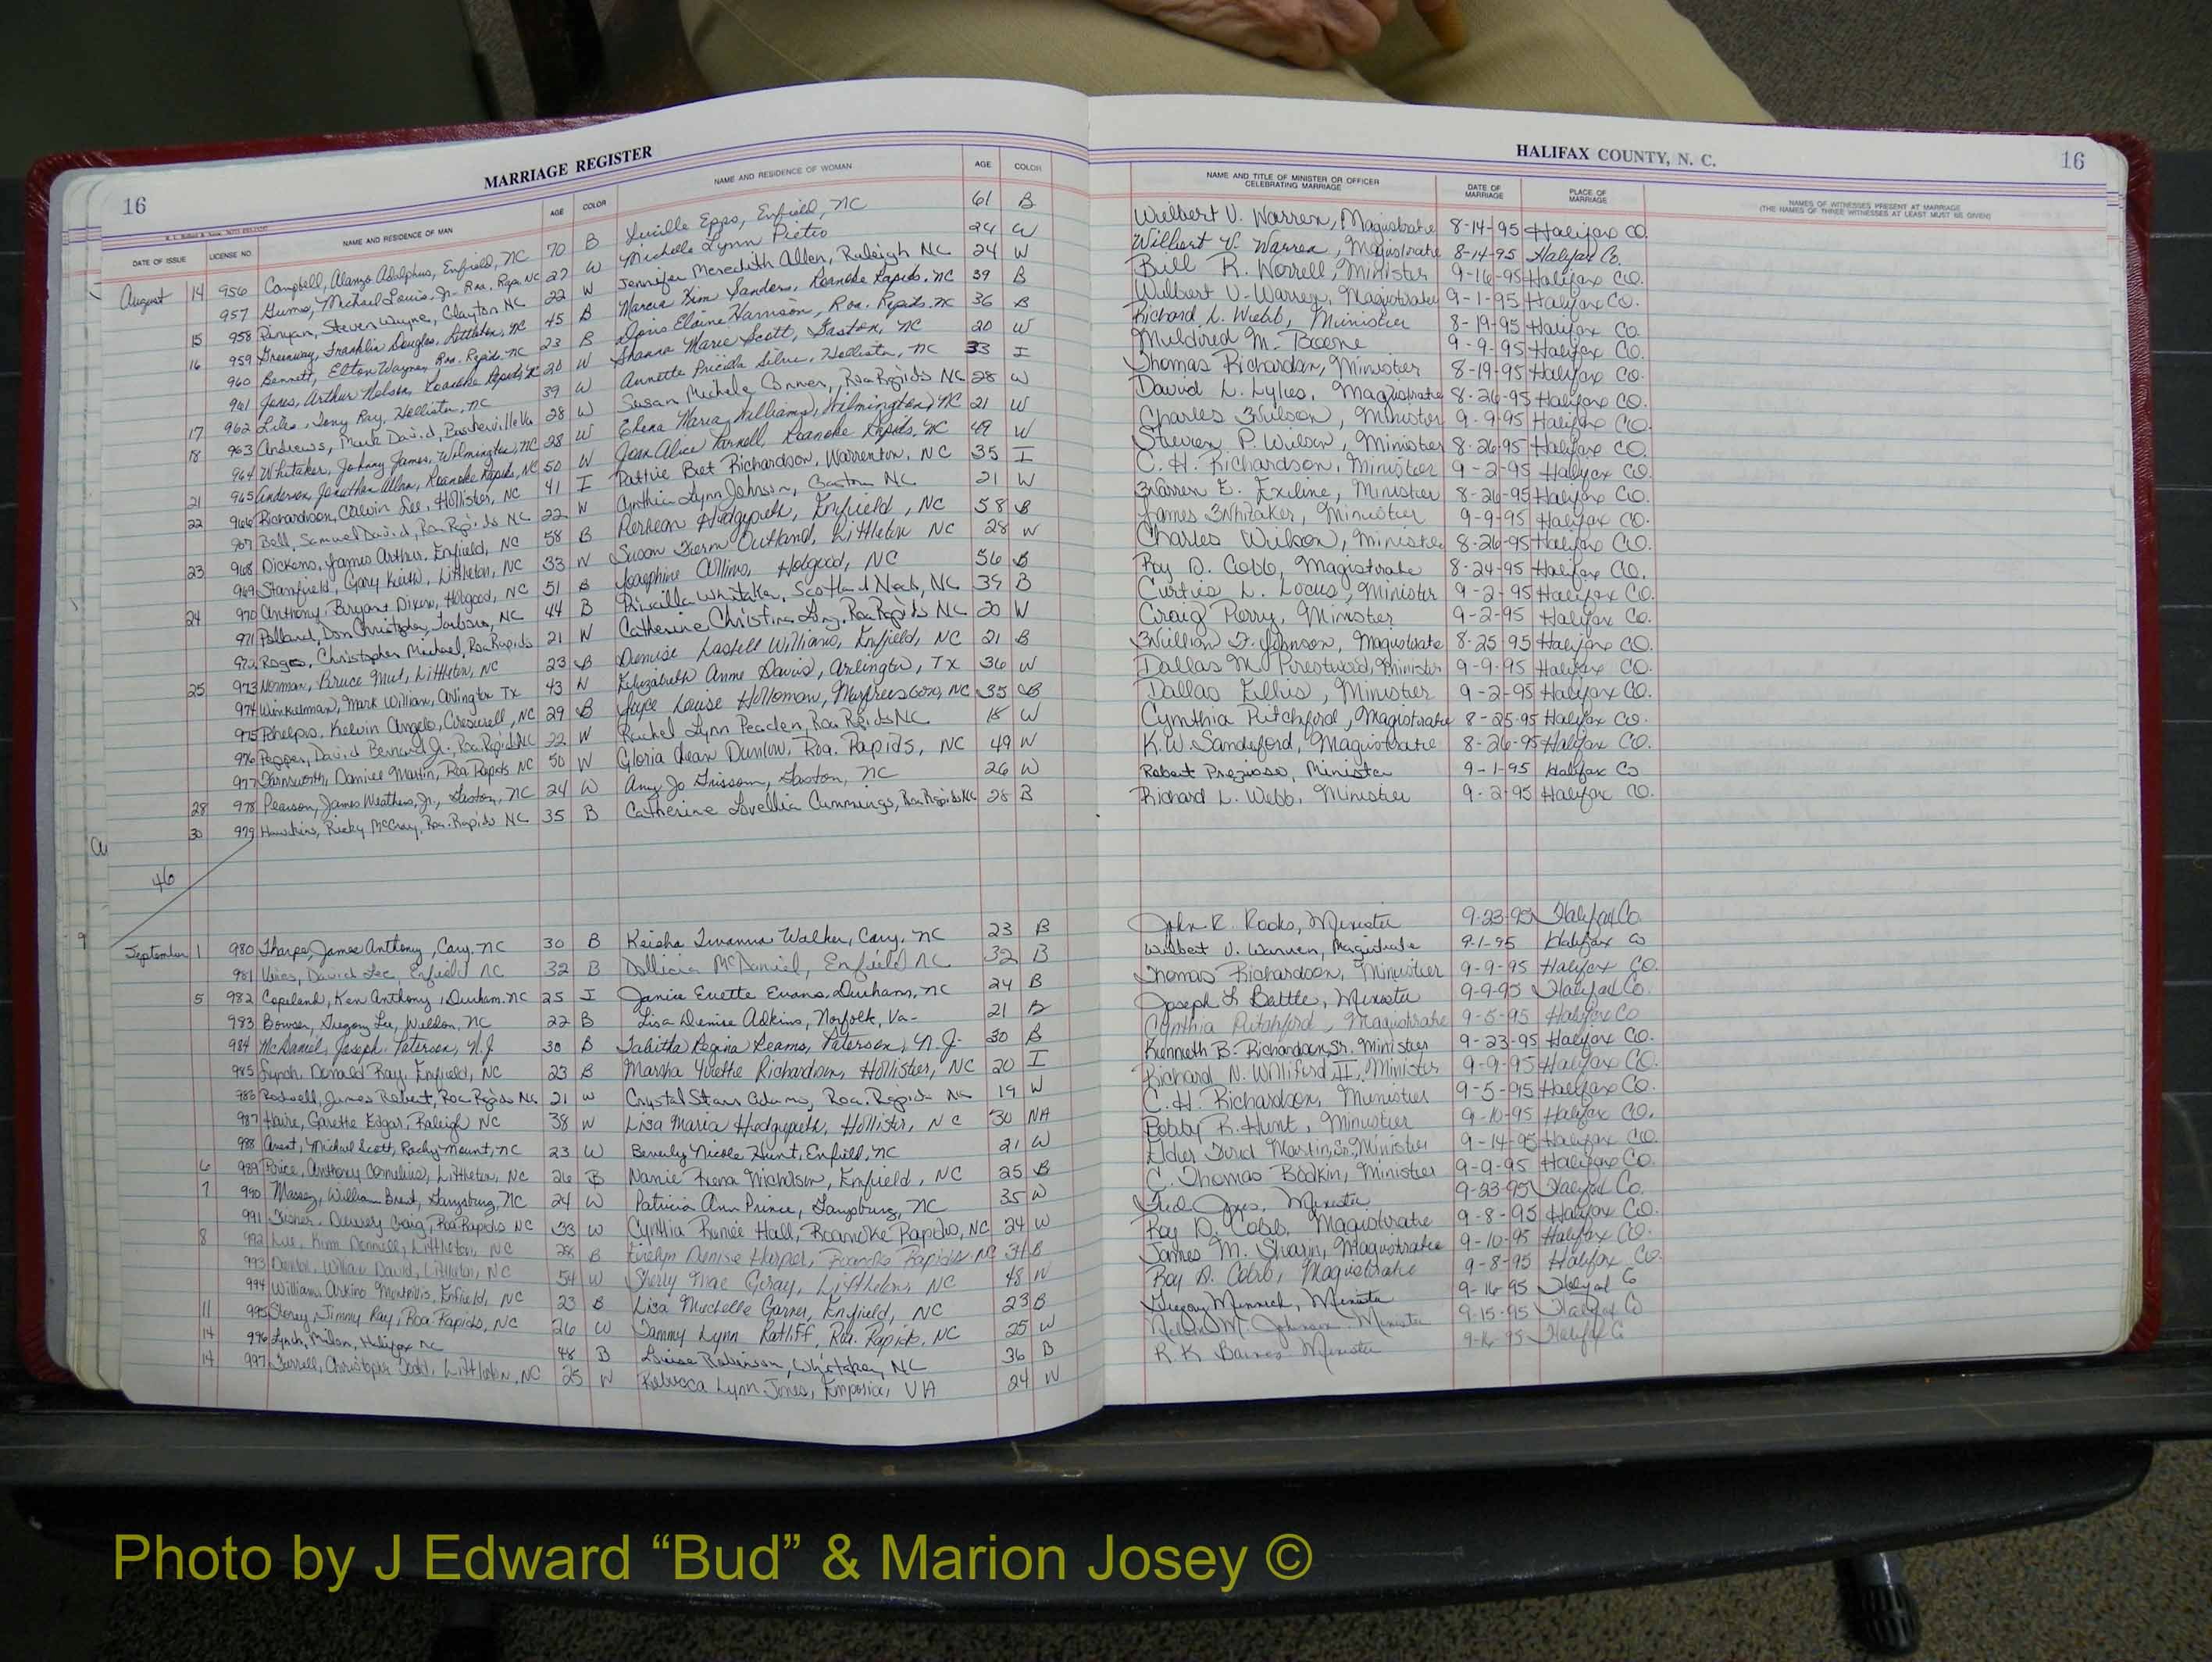 16 MARRIAGE REGISTER
DATE OF ISSUE LICENSE NO. NAME AND RESIDENCE OF MAN AGE COLOR NAME AND RESIDENCE OF WOMAN AGE COLOR
August 14 956 Campbell, Alanzo Adolphus, Enfield, NC 70 B Lucille Epps, Enfield, NC 61 B
957 Gums, Michael Louis, Jr. Roa. Raps. NC 27 W Michelle Lynn Pietro 24 W
15 958 Pinyan, Steven Wayne, Clayton NC 22 W Jennifer Meredith Allen, Raleigh NC 24 W
16 959 Greenway, Franklin Douglas, Littleton, NC 45 B Marcia Kim Sanders, Roanoke Rapids, NC 39 B
960 Bennett, Elton Wayne, Roa. Rapids, NC 23 B Doris Elaine Harrison, Roa. Rapids, NC 36 B
961 Jones, Arthur Nelson, Roanoke Rapids, NC 20 W Shanna Marie Scott, Gaston, NC 20 W
17 962 Liles, Tony Ray, Hollister, NC 39 W Annette Silver, Hollister, NC 33 I
18 963 Andrews, Mark David, Baskerville Va 28 W Susan Michele Conner, Roa Rapids NC 28 W
964 Whitaker, Johnny James, Wilmington, NC 28 W Elena Maria Williams, Wilmington, NC 21 W
21 965 Anderson, Jonathan Allen, Roanoke Rapids, NC 50 W Joan Alice Farnell, Roanoke Rapids, NC 49 W
22 966 Richardson, Calvin Lee, Hollister, NC 41 I Pattie Bet Richardson, Warrenton, NC 35 I
967 Bell, Samuel David, Roa Rapids NC 22 W Cynthia Lynn Johnson, Gaston NC 21 W
23 968 Dickens, James Arthur, Enfield, NC 58 B Hedgepeth, Enfield, NC 58 B
969 Stansfield, Gary Keith, Littleton, NC 33 W Susan Outland, Littleton NC 28 W
24 970 Anthony, Bryant Dixon, Hobgood, NC 51 B Josephine Hobgood, NC 56 B
971 Pollard, Don Christopher, Tarboro, NC 44 B Priscilla Whitaker, Scotland Neck, NC 39 B
972 Rogers, Christopher Michael, Roa Rapids 21 W Catherine Christina Long, Roa Rapids NC 20 W
25 973 Norman, Bruce Littleton, NC 23 B Denise Lashell Williams, Enfield, NC 21 B
974 Winkelman, Mark William, Arlington TX 43 W Elizabeth Anne David, Arlington, TX 36 W
975 Phelps, Kelvin Angelo, Creswell, NC 29 B Joyce Louise Holloman, Murfreesboro, NC 35 B
976 Pepper, David Bernard Jr. Roa Rapids NC 22 W Rachel Lynn Peaden, Roa Rapids NC 18 W
977 Farnsworth, Daniel Martin, Roa Rapids NC 50 W Gloria Jean Dunlow, Roa. Rapids, NC 49 W
28 978 Pearson, James Weathers, Jr., Gaston, NC 24 W Amy Jo Grissom, Gaston, NC 26 W
30 979 Hawkins, Ricky McCray, Roa. Rapids NC 35 B Catherine Lovellia Cummings, Roa Rapids NC 28 B
46
September 1 980 Tharpe, James Anthony, Cary, NC 30 B Keisha Twanna Walker, Cary, NC 23 B
981 Vines, David Lee, Enfield NC 32 B Dollicia McDaniel, Enfield NC 32 B
5 982 Copeland, Ken Anthony, Durham, NC 25 I Janice Evette Evans, Durham, NC 24 B
983 Bowser, Gregory Lee, Weldon, NC 22 B Lisa Denise Adkins, Norfolk, Va- 21 B
984 McDaniel, Joseph, Paterson, N.J 30 B Tabitha Regina Reams, Paterson, N.J. 30 B
985 Lynch, Donald Ray, Enfield, NC 23 B Marsha Yvette Richardson, Hollister, NC 20 I
986 Rodwell, James Robert, Roa Rapids NC 21 W Crystal Starr Adams, Roa. Rapids NC 19 W
987 Haire, Garette Edgar, Raleigh NC 38 W Lisa Maria Hedgepeth, Hollister, NC 30 NA
988 Avent, Michael Scott, Rocky Mount, NC 23 W Beverly Nicole Hunt, Enfield, NC 21 W
6 989 Price, Anthony Cornelius, Littleton, NC 26 B Namie Nicholson, Enfield, NC 25 B
7 990 Massey, William Brent, Garysburg, NC 24 W Patricia Ann Prince, Garysburg, NC 35 W
991 Fisher, Dewey Craig, Roa Rapids NC 33 W Cynthia Renée Hall, Roanoke Rapids, NC 24 W
8 992 Lee, Kim Donnell, Littleton, NC 28 B Evelyn Denise Harper, Roanoke Rapids, NC 31 B
993 William David, Littleton, NC 54 W Sherry Mae Gray, Littleton, NC 48 W
994 Williams, Enfield, NC 23 B Lisa Muchelle Garner, Enfield, NC 23 B
11 995 Storey, Jimmy Ray, Roa. Rapids, NC 26 W Tammy Lynn Ratliff, Roa. Rapids, NC 25 W
14 996 Lynch, Milton, Halifax NC 48 B Louise Robinson, Whitakers, NC 36 B
14 997 Christopher Todd, Littleton, NC 25 W Rebecca Lynn Jones, Emporia, VA 24 W
HALIFAX COUNTY, N. C. 16
NAME AND TITLE OF MINISTER OR OFFICER CELEBRATING MARRIAGE DATE OF MARRIAGE PLACE OF MARRIAGE NAMES OF WITNESSES PRESENT AT MARRIAGE
(THE NAMES OF THREE WITNESSES AT LEAST MUST BE GIVEN)
Wilbert V. Warren, Magistrate 8-14-95 Halifax CO.
Wilbert V. Warren, Magistrate 8-14-95 Halifax Co.
Bill R. Worrell, Minister 9-16-95 Halifax CO.
Wilbert V. Warren, Magistrate 9-1-95 Halifax Co.
Richard L. Webb, Minister 8-19-95 Halifax CO.
Mildred M. Boone 9-9-95 Halifax CO.
Thomas Richardson, Minister 8-19-95 Halifax CO.
David L. Lyles, Magistrate 8-26-95 Halifax CO.
Charles Wilson, Minister 9-9-95 Halifax CO.
Steven P. Wilson, Minister 8-26-95 Halifax CO.
C. H. Richardson, Minister 9-2-95 Halifax CO.
Warren E. Exline, Minister 8-26-95 Halifax CO.
James Whitaker, Minister 9-9-95 Halifax CO.
Charles Wilson, Minister 8-26-95 Halifax CO.
Roy D. Cobb, Magistrate 8-24-95 Halifax CO.
Curtis L. Locus, Minister 9-2-95 Halifax CO.
Craig Perry, Minister 9-2-95 Halifax Co.
William F. Johnson, Magistrate 8-25-95 Halifax CO.
Dallas M. Prestwood, Minister 9-9-95 Halifax CO.
Dallas Ellis, Minister 9-2-95 Halifax CO.
Cynthia Pitchford, Magistrate 8-25-95 Halifax Co.
K.W. Sandiford, Magistrate 8-26-95 Halifax CO.
Robert Prezioso, Minister 9-1-95 Halifax Co
Richard L. Webb, Minister 9-2-95 Halifax CO.
John R. Rooks, Minister 9-23-95 Halifax Co.
Wilbert V. Warren, Magistrate 9-1-95 Halifax Co
Thomas Richardson, Minister 9-9-95 Halifax CO.
Joseph L Battle, Minister 9-9-95 Halifax Co.
Cynthia Pitchford, Magistrate 9-5-95 Halifax Co
Kenneth B. Richardson, Sr. Minister 9-23-95 Halifax CO.
Richard N. Williford, II, Minister 9-9-95 Halifax CO.
C. H. Richardson, Minister 9-5-95 Halifax Co.
Bobby R. Hunt, Minister 9-10-95 Halifax CO.
Elder Martin, Sr., Minister 9-14-95 Halifax CO.
C. Thomas Bodkin, Minister 9-9-95 Halifax CO.
Fred Minister 9-23-95 Halifax Co.
Roy D. Cobb, Magistrate 9-8-95 Halifax CO.
James M. Shearin, Magistrate 9-10-95 Halifax CO.
Roy D. Cobb, Magistrate 9-8-95 Halifax Co.
Gregory Minnick, Minister 9-16-95 Halifax Co
M. Johnson, Minister 9-15-95 Halifax Co
R. K. Barnes, Minister 9-16-95 Halifax Co
Photo by J Edward “Bud” & Marion Josey ©